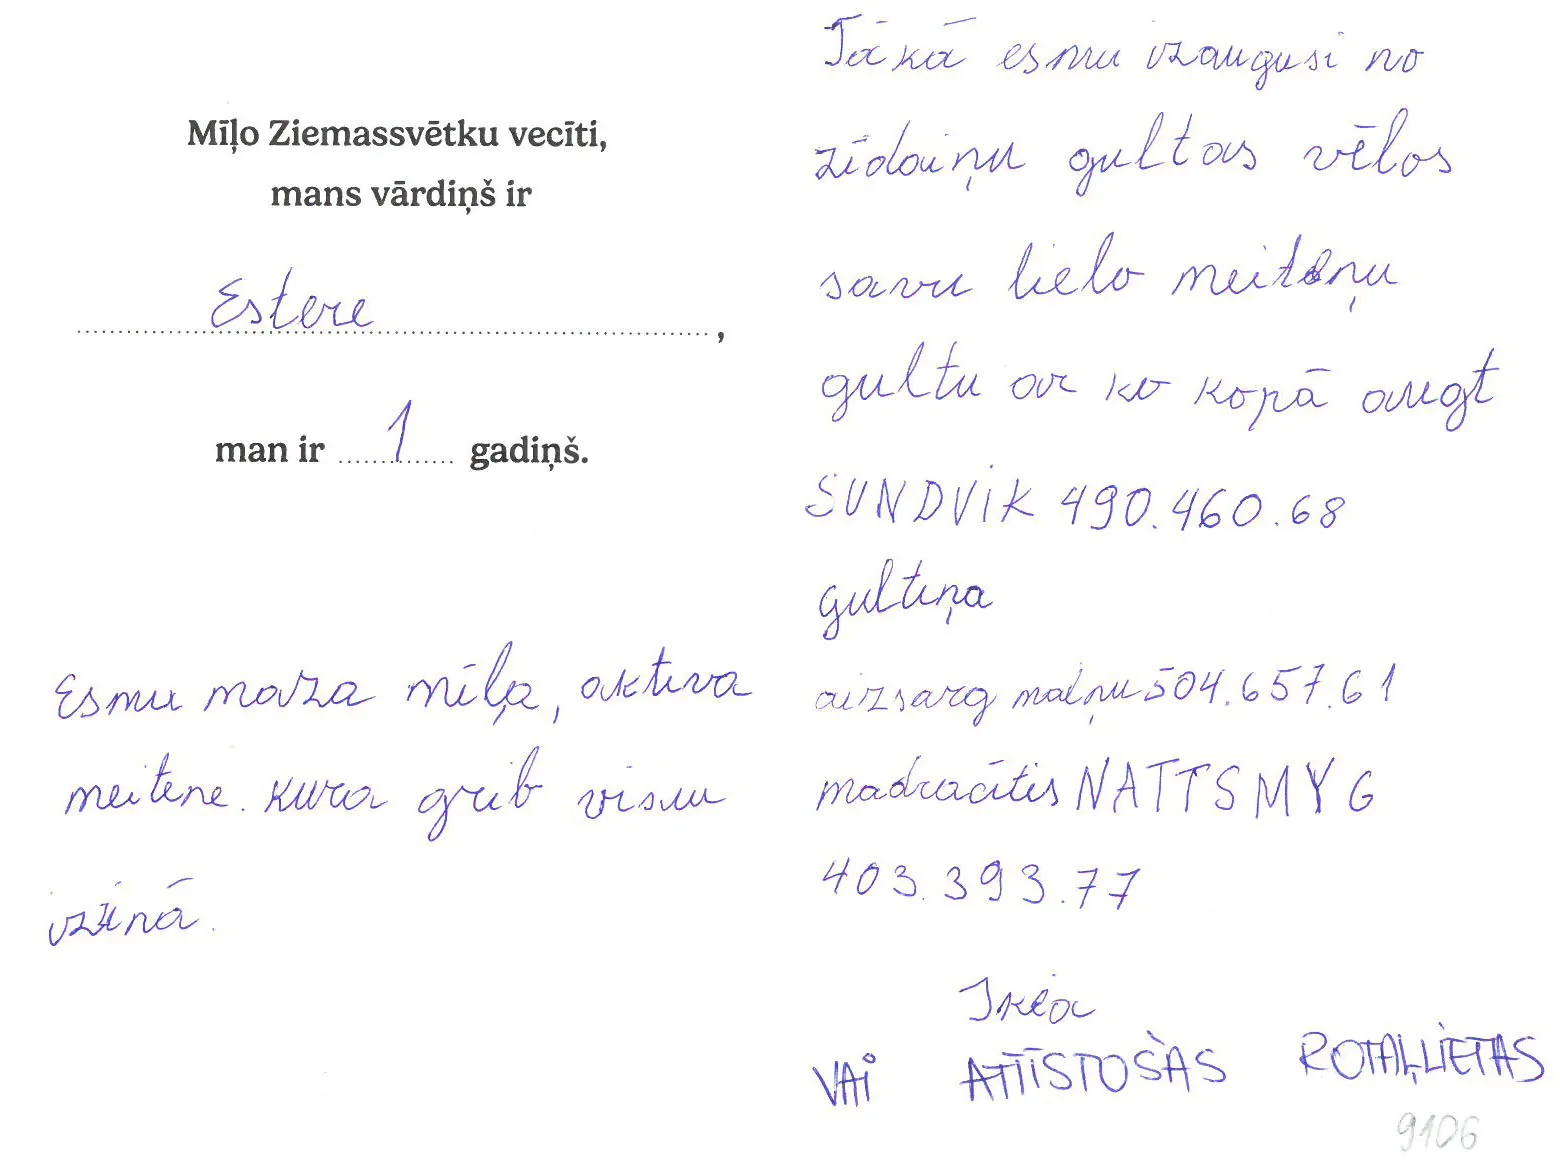 Mīļo Ziemassvētku vecīti,
mans vārdiņš ir
Estere
man ir 1 gadiņš.
Esmu maza mīļa, aktīva
meitene. kura grib visu
izzinā.
Tā kā esmu izaugusi no
zīdaiņu gultas vēlos
savu lielo meiteņu
gultu ar ko kopā augt
SUNDVIK 490.460.68
gultiņa
aizsarg maliņu 504.657.61
madracītis NATTSMYG
403.393.77
Ikea
VAI ATTĪSTOŠAS ROTAĻLIETAS
9106